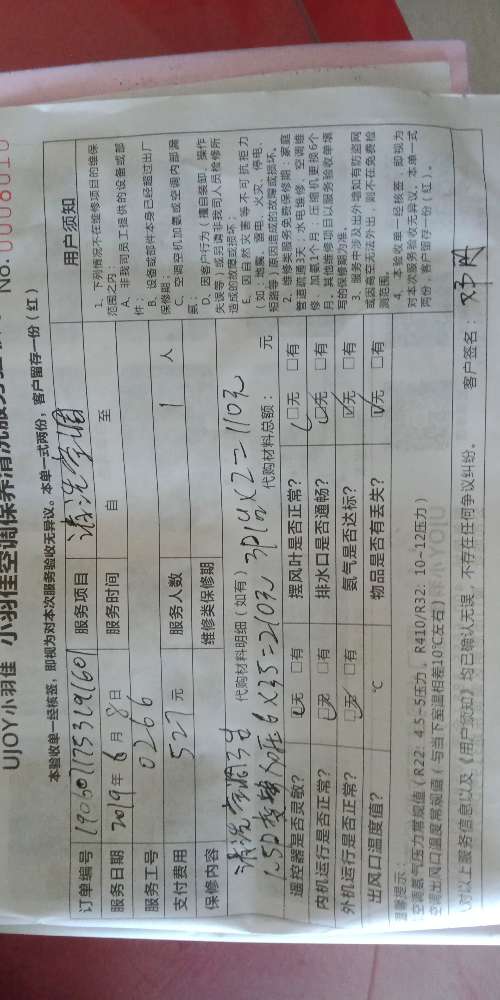 UJOY小羽佳 小羽佳空调保养清洗服务验收单 No. 0008010
本验收单一经核签，即视为对本次服务验收无异议。本单一式两份，客户留存一份（红）
订单编号 服务项目 清洗空调
服务日期 2019年6月8日 服务时间 自 至
服务工号 0266
支付费用 527元 服务人数 1人
保修内容 维修类保修期
清洗空调
代购材料明细（如有）
6×35=210元 3P柜×2=110元
代购材料总额： 元
遥控器是否灵敏？ □无 □有 摆风叶是否正常？ □无 □有
内机运行是否正常？ □无 □有 排水口是否通畅？ □无 □有
外机运行是否正常？ □无 □有 氨气是否达标？ □无 □有
出风口温度值？ ℃ 物品是否有丢失？ □无 □有
用户须知
1、下列情况不在维修项目的维保
范围之内：
A、非我司员工提供的设备或部
件
B、设备或部件本身已经超过出厂
保修期；
C、空调空机加氨或空调内部漏
氨；
D、因客户行为（擅自装卸、操作
失误等）或另请非我司人员检修所
造成的故障或损坏；
E、因自然灾害等不可抗拒力
（如：地震、雷电、火灾、停电、
短路等）原因造成的故障或损坏。
2、维修类服务免费保修期：家庭
管道疏通3天；水电维修、空调维
修、加氨1个月；压缩机更换6个
月，其他维修项目以服务验收单填
写的保修期为准。
3、服务中涉及出外墙如有防盗网
或因高空无法外出，则不在免费检
测范围。
4、本验收单一经核签，即视为
对本次服务验收无异议，本单一式
两份，客户留存一份（红）。
温馨提示：
空调氨气压力常规值（R22：4.5~5压力，R410/R32：10~12压力）
空调出风口温度常规值（与当下室温相差10℃左右）
（对以上服务信息以及《用户须知》均已确认无误，不存在任何争议纠纷。 客户签名：